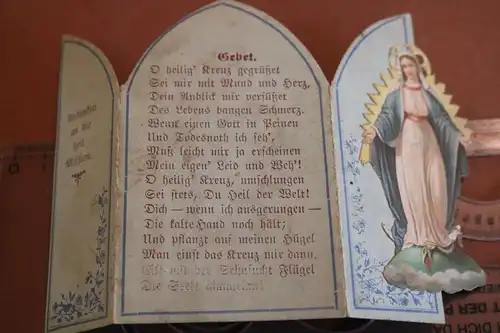 Andenken
an die
heil.
Mission.
Gebet.
O heilig' Kreuz gegrüßet
Sei mir mit Mund und Herz,
Dein Anblick mir versüßet
Des Lebens bangen Schmerz.
Wenn einen Gott in Peinen
Und Todesnoth ich seh',
Muß leicht mir ja erscheinen
Mein eigen' Leid und Weh'!
O heilig' Kreuz, umschlungen
Sei stets, Du Heil der Welt!
Dich — wenn ich ausgerungen —
Die kalte Hand noch hält;
Und pflanzt auf meinen Hügel
Man einst das Kreuz mir dann,
mit der Sehnsucht Flügel
Die Seele